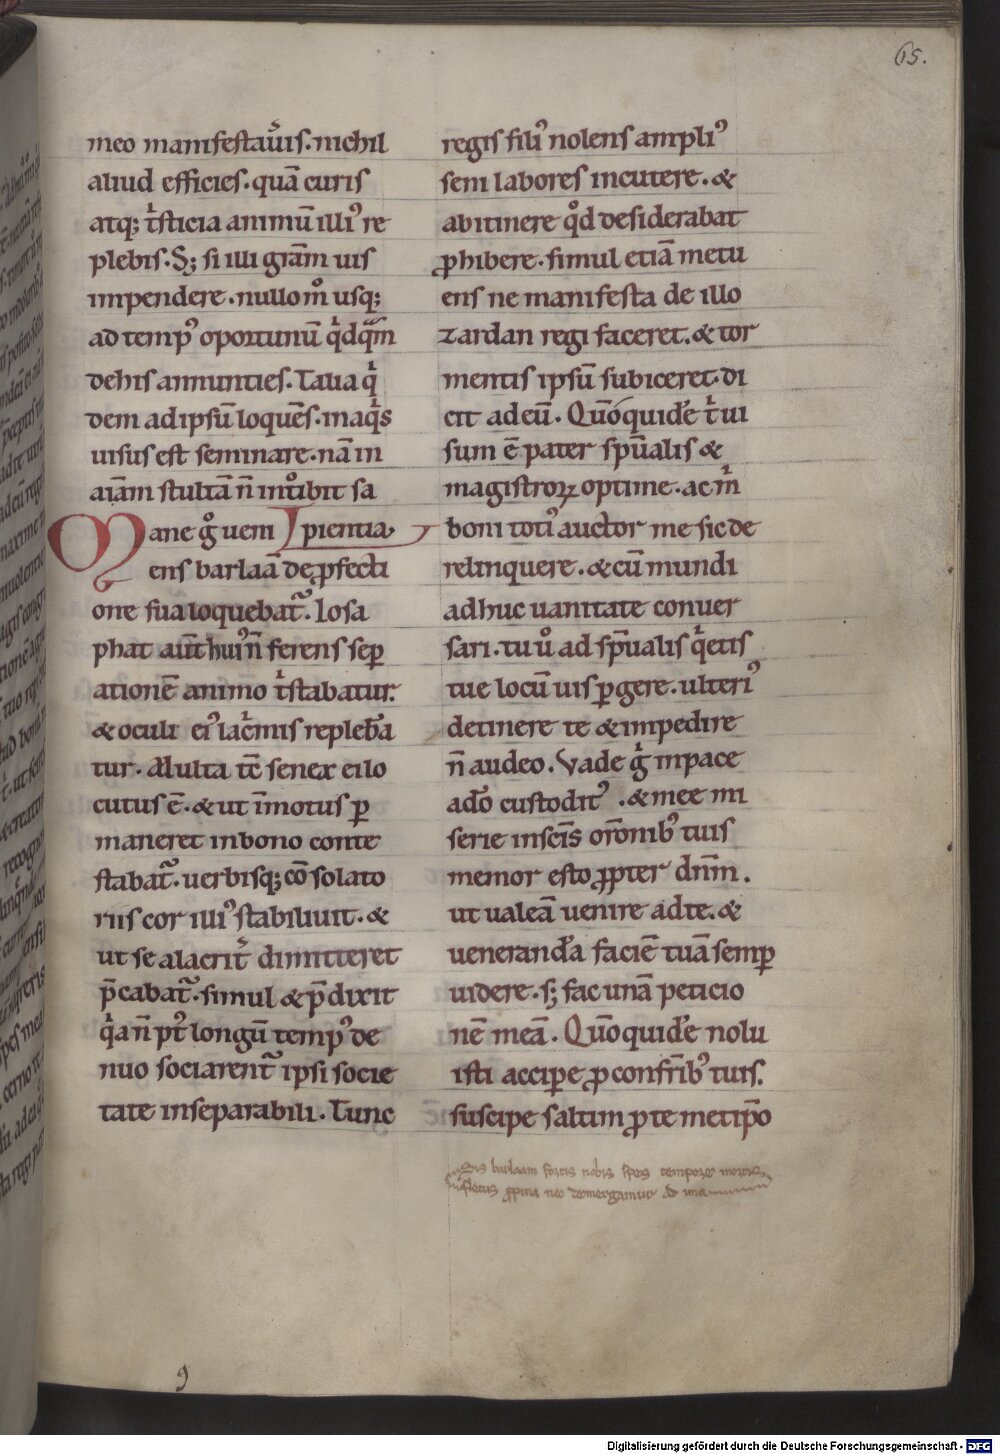 65.
meo manifestaṽis. nichil
aliud efficies. quā curis
atq; tͥsticia animū illi᾽ re
plebis. S; si illi grām uis
impendere. nullo mͦ usq;
ad temp᾽ oportunū qͥdqᷓm
de his annunties. Talia qͥ
dem ad ipsū loquēs. in aqͥs
uisus est seminare. nā in
aīam stultā n̄ intͦibit sa
pientia.
Mane gͦ ueni
ens barlaā de ꝓfecti
one sua loquebat᷑. Iosa
phat aut̄ hui᾽ n̄ ferens seꝑ
ationē animo tͥstabatur.
& oculi ei᾽ lac̄mis repleb̄a
tur. Multa t̄e senex ei lo
cutus ē. & ut īmotus ꝑ
maneret in bono conte
stabat᷑. uerbisq; cōsolato
riis cor illi᾽ stabiliuit. &
ut se alacrit̉ dimitteret
p̄cabat᷑. simul & p̄dixit
qͥa n̄ p᷒t longū temp᾽ de
nuo sociarent᷑ ipsi socie
tate inseparabili. Tunc
regis fili᾽ nolens ampli᾽
seni labores incutere. &
abitinere qͦd desiderabat
ꝓhibere. simul etiā metu
ens ne manifesta de illo
zardan regi faceret. & tor
mentis ipsū subiceret. di
cit ad eū. Qūo quidē tͥ ui
sum ē pater sp̄ualis &
magistroꝝ optime. ac m̄
boni toti᾽ auctor me sic de
relinquere. & cū mundi
adhuc uanitate conuer
sari. tu uͦ ad sp̄ualis qͥetis
tue locū uis ꝑgere. ulteri᾽
detinere te & impedire
n̄ audeo. Vade gͦ in pace
a dō custodit᾽. & mee mi
serie in sc̄is orōnib᾽ tuis
memor esto ꝓpter dn̄m.
ut ualeā uenire ad te. &
uenerandā faciē tuā semꝑ
uidere. s; fac unā peticio
nē meā. Qūo quidē nolu
isti accipe ꝓ confr̄ib᾽ tuis.
suscipe saltim ꝓ te metip̄o
Sis barlaam fortis nobis spes tempore mortis
fletus ꝓpina ne demergamur ad una
9
Digitalisierung gefördert durch die Deutsche Forschungsgemeinschaft - DFG